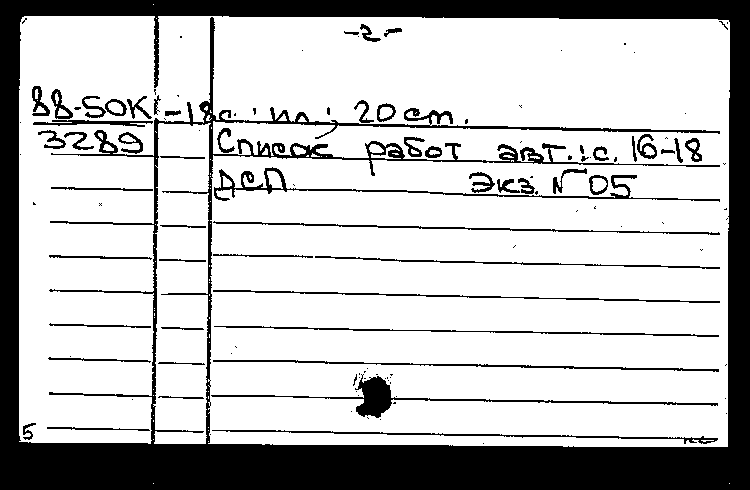 -2-
88-50К -18с.: ил.; 20 cm.
3289 Список работ авт.: с. 16-18
ДСП Экз. № 05
5